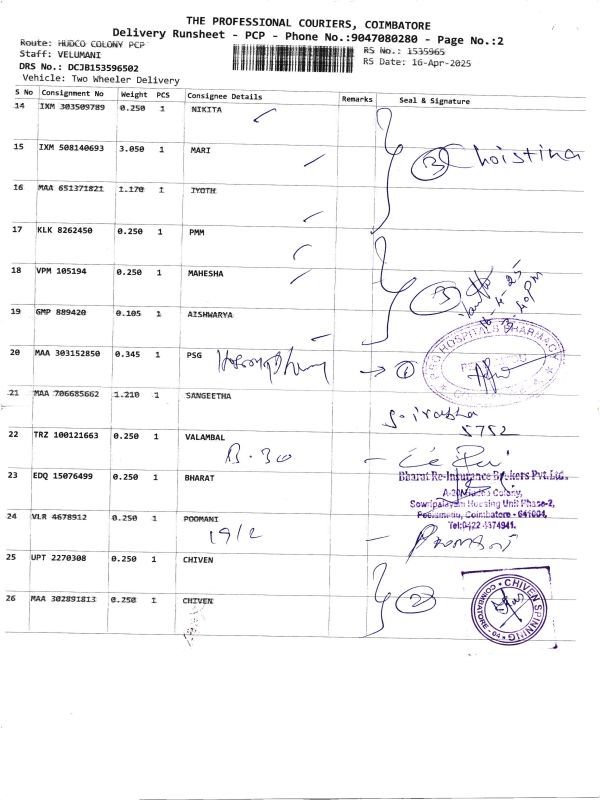 THE PROFESSIONAL COURIERS, COIMBATORE
Delivery Runsheet - PCP - Phone No.:9047080280 - Page No.:2
Route: HUDCO COLONY PCP
Staff: VELUMANI
DRS No.: DCJB153596502
Vehicle: Two Wheeler Delivery
RS No.: 1535965
RS Date: 16-Apr-2025
S No Consignment No Weight PCS Consignee Details Remarks Seal & Signature
14 IXM 303509789 0.250 1 NIKITA
15 IXM 508140693 3.050 1 MARI
3
16 MAA 651371821 1.170 1 JYOTH
17 KLK 8262450 0.250 1 PMM
18 VPM 105194 0.250 1 MAHESHA
3
19 GMP 889420 0.105 1 AISHWARYA
20 MAA 303152850 0.345 1 PSG
1
HOSPITALS PHARMACY
21 MAA 706685662 1.210 1 SANGEETHA
5752
22 TRZ 100121663 0.250 1 VALAMBAL
B-30
23 EDQ 15076499 0.250 1 BHARAT
Bharat Re-Insurance Brokers Pvt.Ltd.,
Colony,
Sowripalayam Housing Unit Phase-2,
Coimbatore - 641004,
24 VLR 4678912 0.250 1 POOMANI
19/2
25 UPT 2270308 0.250 1 CHIVEN
26 MAA 302891813 0.250 1 CHIVEN
2
CHIVEN SPINNING
COIMBATORE - 04